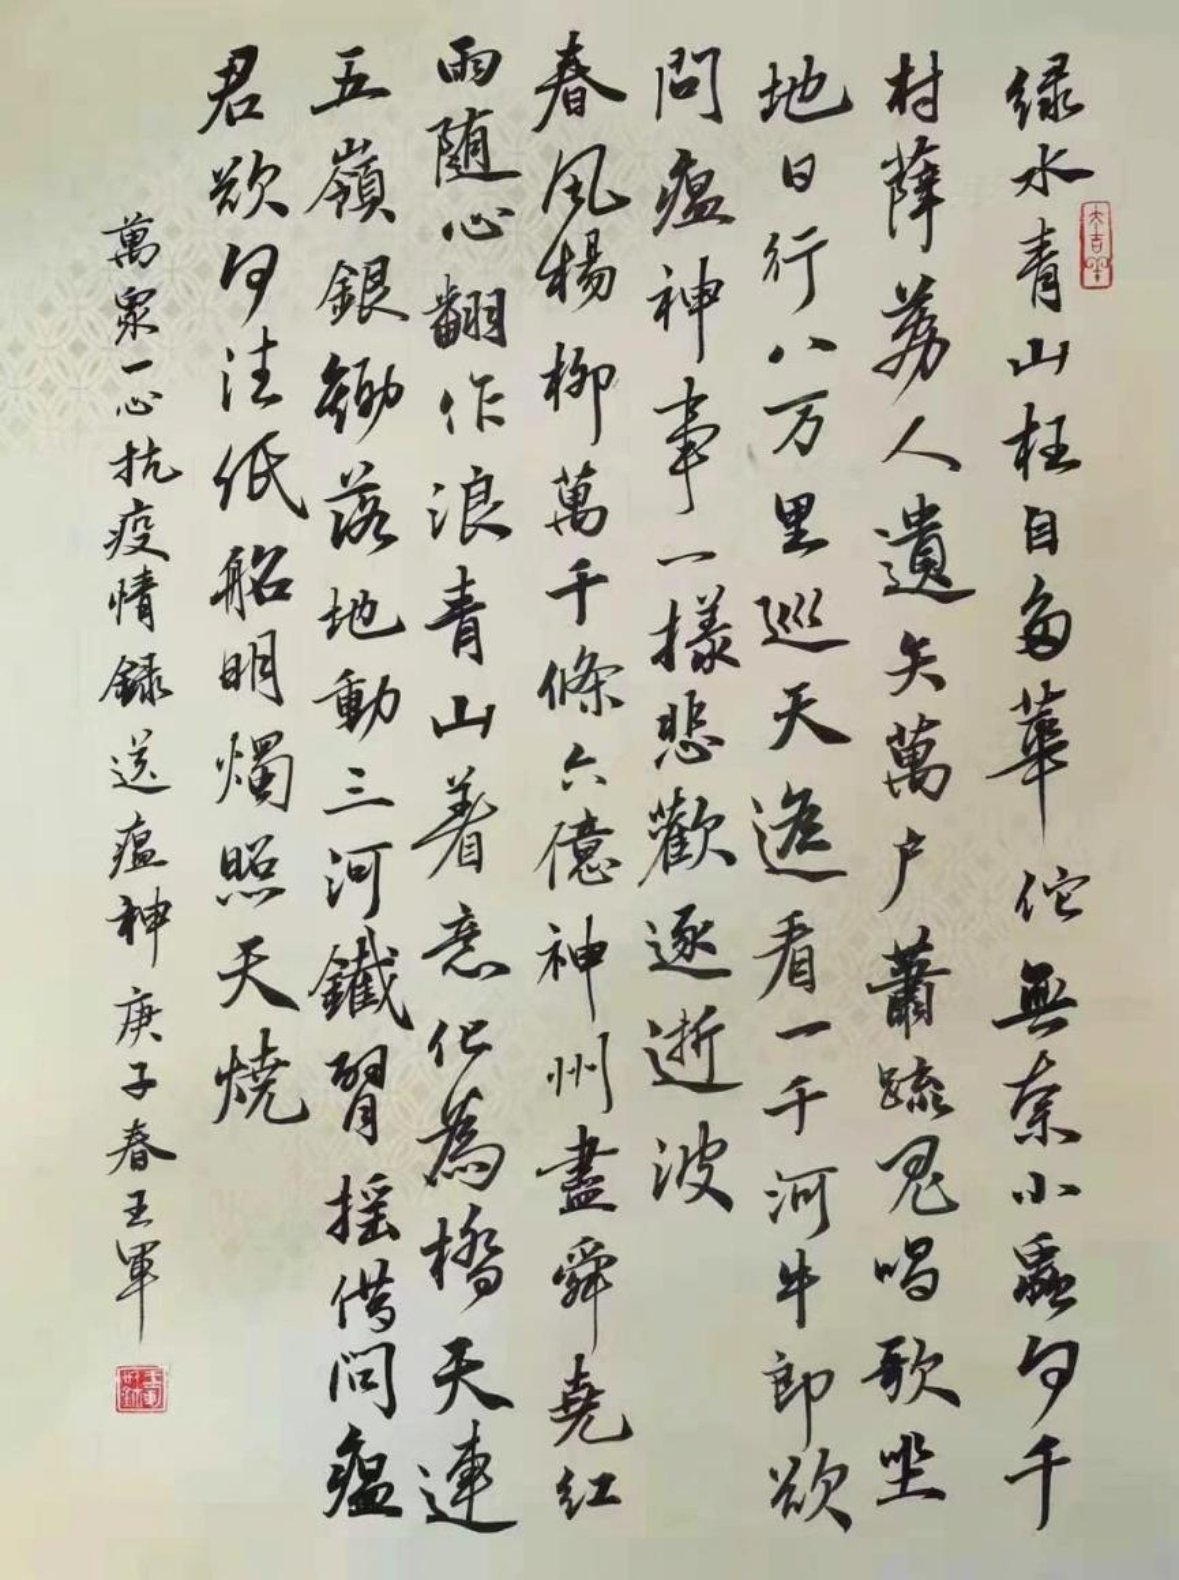 绿水青山枉自多華佗無奈小蟲何千
村薜荔人遺矢萬户蕭疏鬼唱歌坐
地日行八万里巡天遥看一千河牛郎欲
問瘟神事一樣悲歡逐逝波
春風楊柳萬千條六億神州盡舜堯紅
雨随心翻作浪青山着意化為橋天連
五嶺銀鋤落地動三河鐵臂摇借問瘟
君欲何往紙船明燭照天燒
萬眾一心抗疫情録送瘟神庚子春王軍
大吉羊